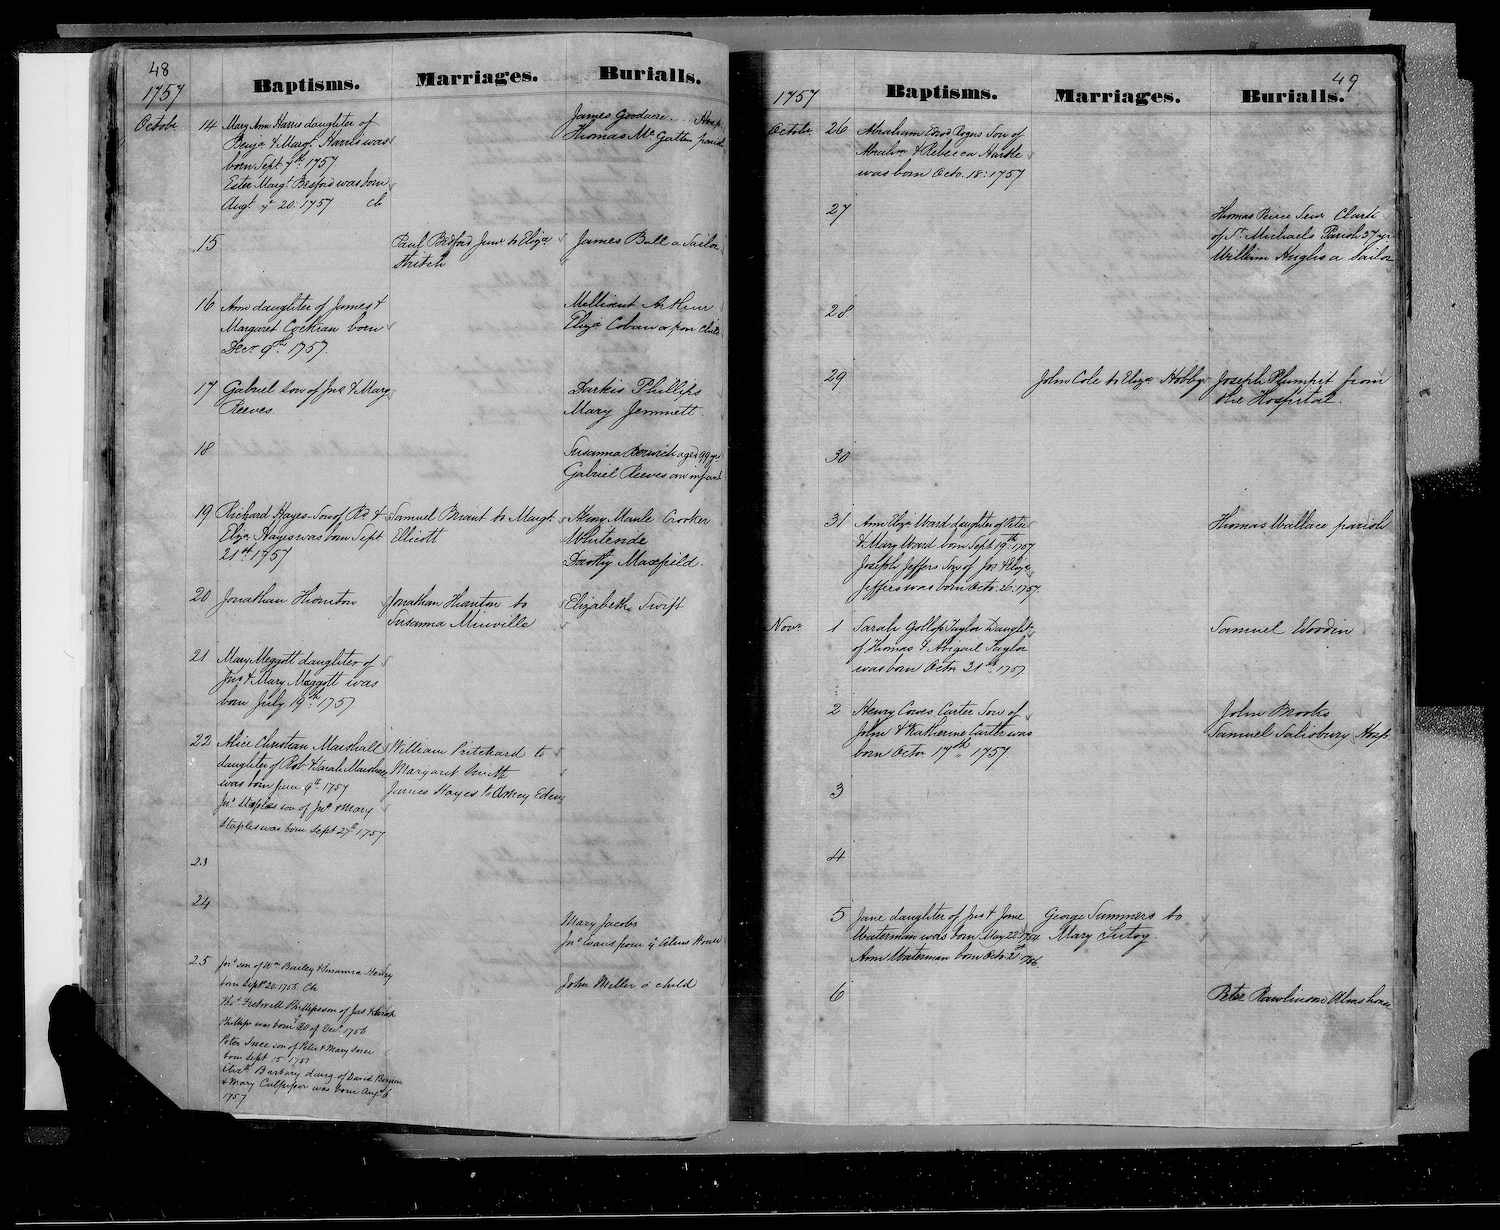 48
1757
Baptisms.
Marriages.
Burialls.
Octobr 14
Mary Ann Harris daughter of
Benja & Margt. Harris was
born Sept 7th 1757
Ester Margt. Besford was born
Augt ye 20: 1757 Ch
James Goodacre Hosp
Thomas Mc Gatten parish
15
Paul Bedford Junr to Eliza
Stretch
James Ball a Sailor
16
Ann daughter of James &
Margaret Cockran born
Decr 9th 1757.
Mellisent Arthur
Eliza Coban a poor Child
17
Gabriel son of Jno & Mary
Reeves
Darkis Phillips
Mary Jemmett
18
Susanna Berwick aged 99 yrs
Gabriel Reeves an infant
19
Richard Hayes Son of Rd &
Eliza Hayes was born Sept
21st 1757
Samuel Brant to Margt.
Ellicott
Henry Manle Crooker
Whitende
Dorothy Maxfield.
20
Jonathan Hunston
Jonathan Hunston to
Susanna Minville
Elizabeth Swift
21
Mary Meggott daughter of
Jno & Mary Meggott was
born July 19th 1757
22
Alice Christian Marshall
daughter of Rob & Sarah Marshall
was born June 9th 1757
Jno Staples son of Jno & Mary
Staples was born Sept 27th 1757
William Pritchard to
Margaret Smith
James Hayes to Edey
23
24
Mary Jacobs
Jno Evans from ye Alms House
25
Jno son of Wm Bailey & Susanna
born Sept 20 1756 Ch
Thos Fretwell Phillips son of Jas & Sarah
Phillips was born 20 of Decr 1756
Peter Snee son of Peter & Mary Snee
born Sept 15 1757
Elizth Barbary daug of David
& Mary Culpeper was born Augt 6
1757
John Miller a child
49
1757
Baptisms.
Marriages.
Burialls.
Octobr 26
Abraham Rogers Son of
Abraham & Rebecca Hartle
was born Octo. 18: 1757
27
Thomas Peirce Senr Clark
of St Michaels Parish 37 yrs
William Hughs a Sailor
28
29
John Cole to Eliza Hobby
Joseph Plumpit from
the Hospital.
30
31
Ann Eliza Ward daughter of Peter
& Mary Ward born Sept 19th 1757
Joseph Jeffers Son of Jos & Eliza
Jeffers was born Octo. 26. 1757
Thomas Wallace parish
Novr 1
Sarah Gollop Taylor Daught
of Thomas & Abigail Taylor
was born Octor 21st 1757
Samuel Woodin
2
Henry Cowes Carter Son of
John & Katherine Carter was
born Octor 17th 1757
John Brooks
Samuel Salisbury Hosp
3
4
5
Jane daughter of Jno & Jane
Waterman was born May 22d
Ann Waterman born Octo 21
George Summers to
Mary
6
Peter Rawlinson Almshouse